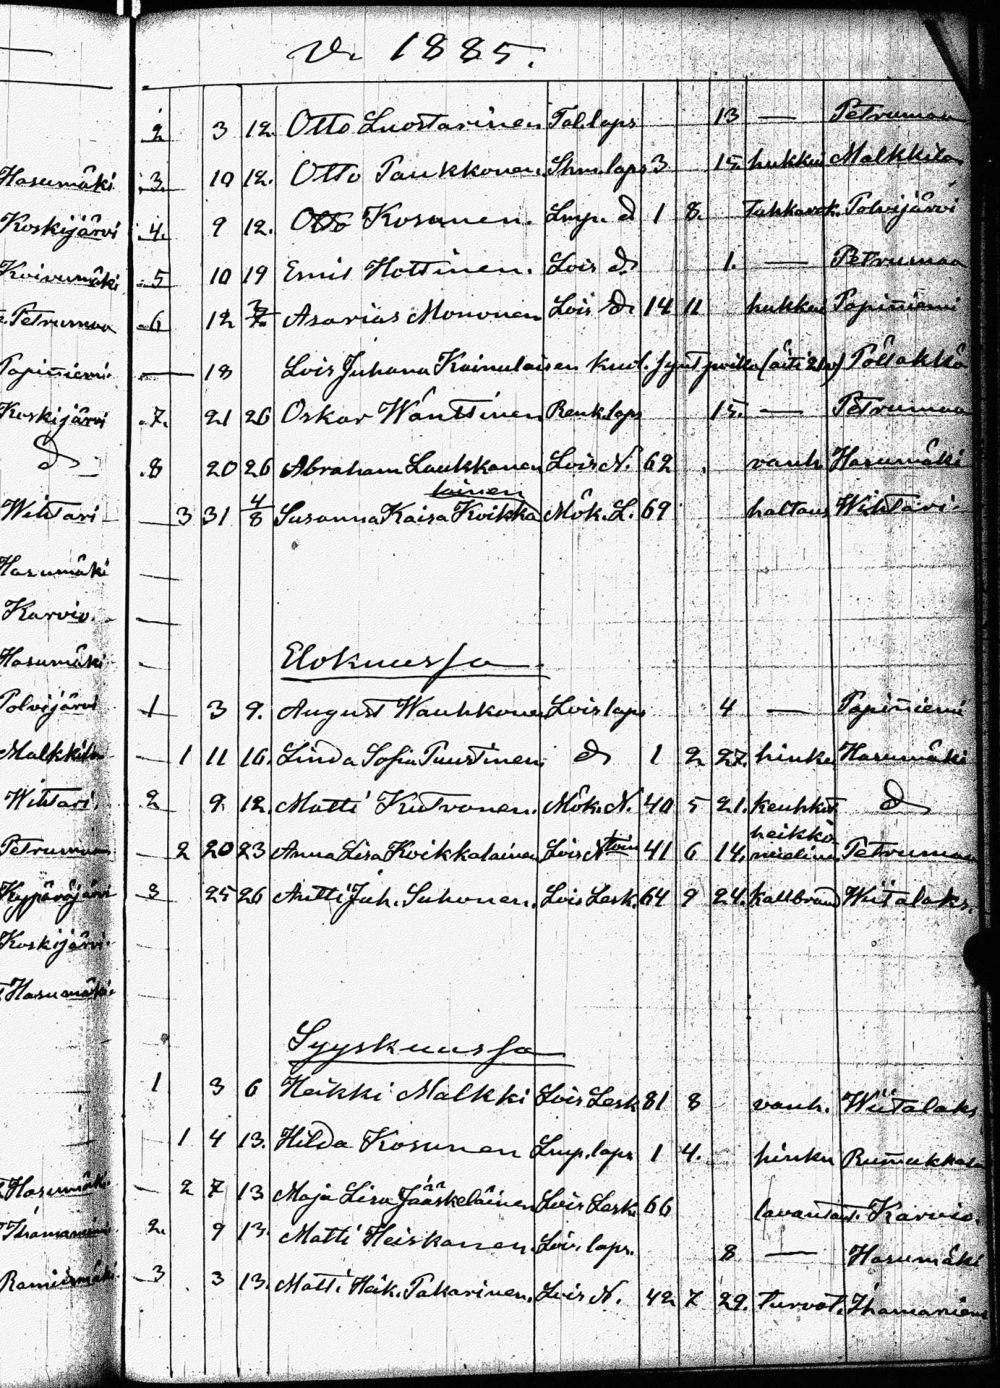 V. 1885.
2 3 12. Otto Luostarinen Tal. laps 13 — Petrumaa
Hasumäki 3. 10 12. Otto Paukkonen 3 15. hukkui Malkkila
Koskijärvi 4. 9 12. Otto Kosunen. Lmp. d 1 8. Polvijärvi
Koivumäki 5 10 19 Emil Hottinen. Lois d. 1. — Petrumaa
Petrumaa 6 12 Asarias Mononen Lois d 14 11 hukkui Papinniemi
Papinniemi — 18 Lois Juhana Kainulaisen kuol. synt. poika (äiti) Pölläkkä
Koskijärvi 7. 21 26 Oskar Wänttinen Renk. laps 15. — Petrumaa
d 8 20 26 Abraham Laukkanen Lois N. 62 vanh. Hasumäki
lainen
Wihtari 3 31 4/8 Susanna Kaisa Koikka Mök. L. 69 haltaus Wihtari
Hasumäki —
Karvio. —
Elokuussa
Hasumäki —
Polvijärvi 1 3 9. August Wauhkonen Lois laps 4 — Papinniemi
Malkkila — 1 11 16. Linda Sofia Puustinen d 1 2 27. hinku Hasumäki
Wihtari 2 9 12. Matti Kutvonen. Mök. N. 40 5 21. keuhkot. d
heikko
Petrumaa — 2 20 23 Anna Liisa Koikkalainen Lois N 41 6 14. mielinen Petrumaa
3 25 26 Antti Juh. Suhonen. Lois Lesk. 64 9 24. kallbrand Wiitalaks.
Koskijärvi. —
Hasumäki. —
Syyskuussa
1 3 6 Heikki Malkki Lois Lesk 81 8 vanh. Wiitalaks
1 4 13. Hilda Kosunen Lmp. laps 1 4. hinku Rummukkala
Hasumäki — 2 7 13 Maja Liisa Jääskeläinen Lois Lesk 66 lavantaut. Karvio.
Ihamaniemi 2. 9 13. Matti Heiskanen. Lois. laps. 8 — Hasumäki
3 3 13. Matti. Heik. Pakarinen. Lois N. 42 7 29. turvot. Ihamaniemi